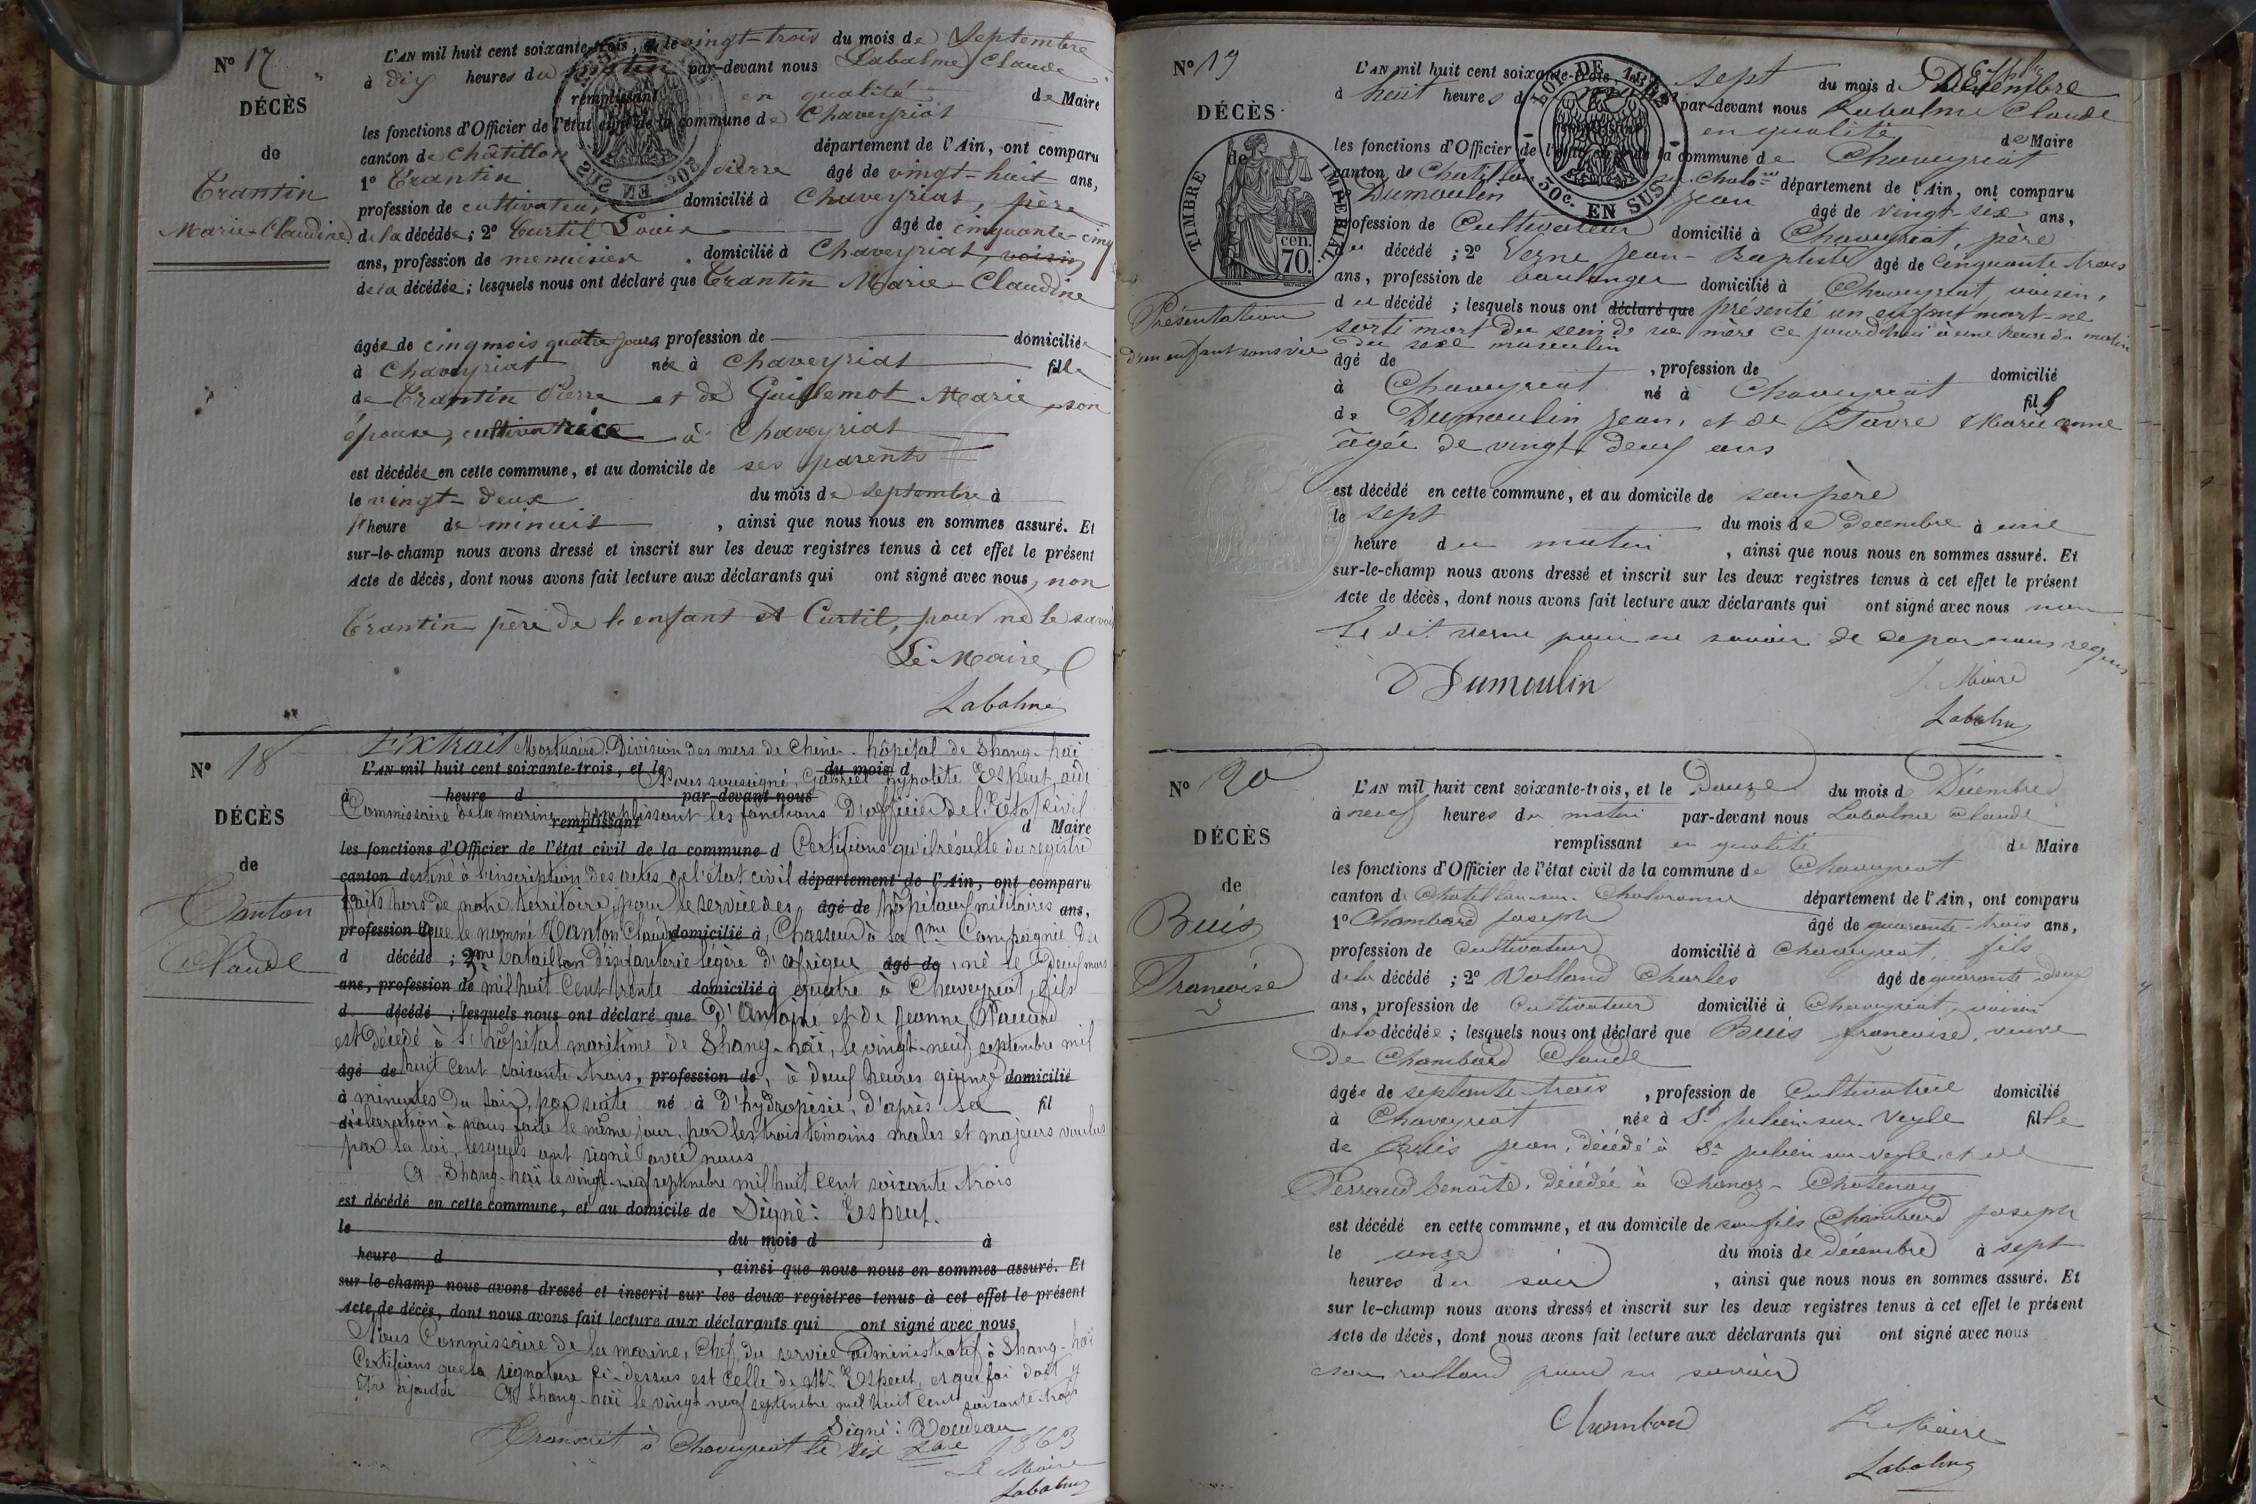 N° 17
DÉCÈS
de
Trantin
Marie-Claudine
L'AN mil huit cent soixante-trois, et le vingt-trois du mois de Septembre
à dix heures du matin par-devant nous Labalme Claude
remplissant en qualité de Maire
les fonctions d'Officier de l'état civil de la commune de Chaveyriat
canton de Châtillon département de l'Ain, ont comparu
1° Trantin Pierre âgé de vingt-huit ans,
profession de cultivateur domicilié à Chaveyriat, père
de la décédée; 2° Curtil Louis âgé de cinquante-cinq
ans, profession de menuisier domicilié à Chaveyriat, voisin
de la décédée; lesquels nous ont déclaré que Trantin Marie-Claudine
âgée de cinq mois quatre jours profession de domiciliée
à Chaveyriat née à Chaveyriat fille
de Trantin Pierre et de Guillemot Marie son
épouse, cultivatrice à Chaveyriat
est décédée en cette commune, et au domicile de ses parents
le vingt-deux du mois de septembre à
l'heure de minuit, ainsi que nous nous en sommes assuré. Et
sur-le-champ nous avons dressé et inscrit sur les deux registres tenus à cet effet le présent
Acte de décès, dont nous avons fait lecture aux déclarants qui ont signé avec nous, non
Trantin père de l'enfant et Curtil, pour ne le savoir
Le Maire
Labalme
N° 18
DÉCÈS
de
Vanton
Claude
Extrait Mortuaire. Division des mers de Chine - hôpital de Shang-haï
L'AN mil huit cent soixante-trois, et le du mois d
Nous soussigné, Gabriel hypolite Espeut, aide
à heure d par-devant nous
Commissaire de la marine remplissant les fonctions d'officier de l'État civil
remplissant d Maire
les fonctions d'Officier de l'état civil de la commune d Certifions qu'il résulte du registre
canton destiné à l'inscription des actes de l'état civil département de l'Ain, ont comparu
faits hors de notre territoire, pour le service des âgé de hôpitaux militaires ans,
profession de que le nommé Vanton Claude domicilié à, Chasseur à la 2me Compagnie du
d décédé ; 2° 2me bataillon d'infanterie légère d'afrique âgé de, né le deux mars
ans, profession de mil huit cent trente domicilié à quatre à Chaveyriat, fils
d décédé ; lesquels nous ont déclaré que d'Antoine et de Jeanne Paccard
est décédé à l'hôpital maritime de Shang-haï, le vingt-neuf septembre mil
âgé de huit cent soixante trois, profession de, à deux heures quinze domicilié
à minutes du soir, par suite né à d'hydropisie, d'après la fil
déclaration à nous faite le même jour, par les trois témoins males et majeurs voulus
par la loi, lesquels ont signé avec nous
A Shang-haï le vingt-neuf septembre mil huit cent soixante trois
est décédé en cette commune, et au domicile de Signé: Espeut.
le du mois d à
heure d , ainsi que nous nous en sommes assuré. Et
sur-le-champ nous avons dressé et inscrit sur les deux registres tenus à cet effet le présent
Acte de décès, dont nous avons fait lecture aux déclarants qui ont signé avec nous
Nous Commissaire de la marine, Chef du service administratif à Shang-haï
Certifions que la signature ci-dessus est celle de Mr Espeut, et que foi doit y
être ajoutée A Shang-haï le vingt-neuf septembre mil huit cent soixante trois
Signé:
Transcrit à Chaveyriat le six Xbre 1863
Le Maire
Labalme
N° 19
DÉCÈS
de
TIMBRE IMPÉRIAL
70 cen.
Présentation
d'un enfant sans vie
L'AN mil huit cent soixante-trois, sept du mois de Décembre
à huit heures d par-devant nous Labalme Claude
en qualité de Maire
les fonctions d'Officier de l'état civil de la commune de Chaveyriat
canton de Chatillon sur Chalne département de l'Ain, ont comparu
Dumoulin Jean âgé de vingt-six ans,
profession de Cultivateur domicilié à Chaveyriat, père
du décédé ; 2° Verne Jean-Baptiste âgé de cinquante trois
ans, profession de boulanger domicilié à Chaveyriat, voisin,
du décédé ; lesquels nous ont déclaré que présenté un enfant mort-né
sorti mort du sein de sa mère ce jourd'hui à une heure du matin
du sexe masculin
âgé de , profession de domicilié
à Chaveyriat né à Chaveyriat fils
de Dumoulin Jean, et de Favre Marie anne
âgée de vingt deux ans
est décédé en cette commune, et au domicile de son père
le sept du mois de Decembre à une
heure du matin, ainsi que nous nous en sommes assuré. Et
sur-le-champ nous avons dressé et inscrit sur les deux registres tenus à cet effet le présent
Acte de décès, dont nous avons fait lecture aux déclarants qui ont signé avec nous non
le dit verne pour ne savoir de ce par nous requis
Dumoulin
Maire
Labalme
DE 1852
30c. EN SUS
N° 20
DÉCÈS
de
Buis
Francoise
L'AN mil huit cent soixante-trois, et le Douze du mois de Décembre
à neuf heures du matin par-devant nous Labalme Claude
remplissant en qualité de Maire
les fonctions d'Officier de l'état civil de la commune de Chaveyriat
canton de Chatillon-sur-Chalaronne département de l'Ain, ont comparu
1° Chambard Joseph âgé de quarante-trois ans,
profession de Cultivateur domicilié à Chaveyriat, fils
de la décédé ; 2° Volland Charles âgé de quarante deux
ans, profession de Cultivateur domicilié à Chaveyriat, voisin
de la décédée ; lesquels nous ont déclaré que Buis francoise, veuve
De Chambard Claude
âgée de septante-trois , profession de Cultivatrice domicilié
à Chaveyriat née à St Julien-sur-Veyle fille
de Buis Jean, décédé à St Julien sur Veyle, et de
Perraud benoite, décédée à Chanoz-Chatenay
est décédé en cette commune, et au domicile de son fils Chambard Joseph
le onze du mois de décembre à sept
heures du soir , ainsi que nous nous en sommes assuré. Et
sur le-champ nous avons dressé et inscrit sur les deux registres tenus à cet effet le présent
Acte de décès, dont nous avons fait lecture aux déclarants qui ont signé avec nous
non volland pour ne savoir
Chambard
Le Maire
Labalme